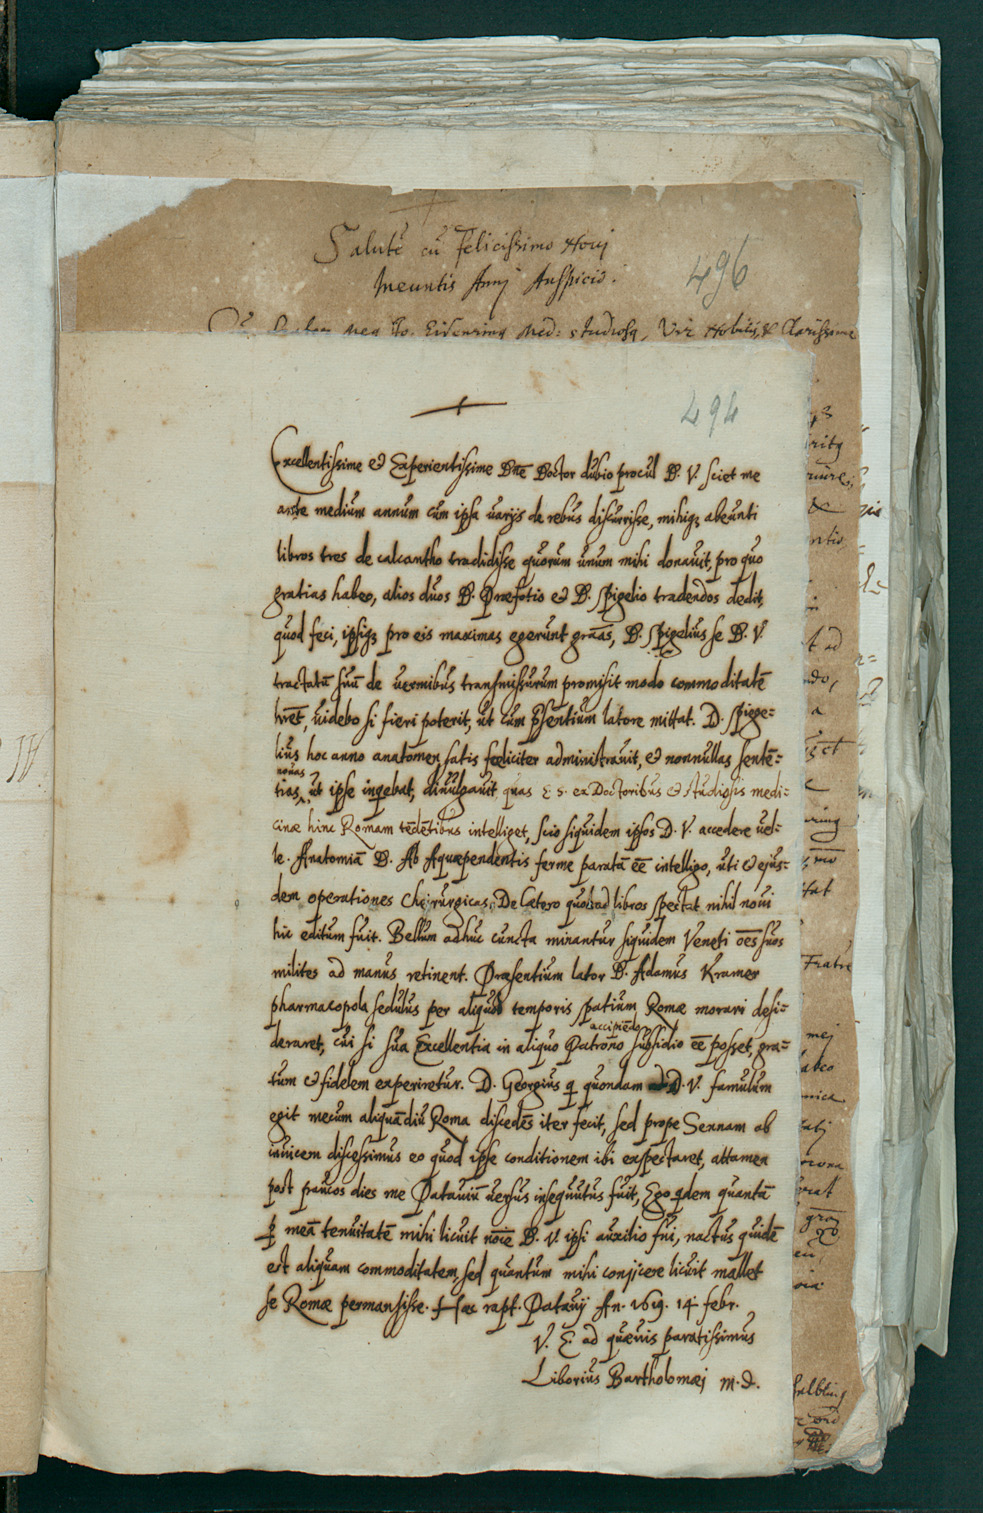 Salutē cū Felicissimo Novi
Ineuntis Annj Auspicio.
496
Med: studiosq, Vir Nobiliss. & Clarissime
494
Excellentissime et Experientissime Dn̄e Doctor dubio procul D. V. sciet me
ante medium annum cum ipsa uarijs de rebus discurrisse, mihiq; abeunti
libros tres de calcantho tradidisse quorum unum mihi donauit, pro quo
gratias habeo, alios duos D. Præfotio et D. Spigelio tradendos dedit,
quod feci, ipsiq; pro eis maximas egerunt gr̄as, D. Spigelius se D. V.
tractatū suū de uermibus transmissurum promisit modo commoditatē
hr̄et, uidebo si fieri poterit, ut cum p̄sentium latore mittat. D. Spige-
lius hoc anno anatomen satis feeliciter administrauit, et nonnullas sentē-
nouas
tias, ut ipse inquebat, diuulgauit, quas E. S. ex Doctoribus et studiosis medi-
cinæ hinc Romam tēdētibus intelliget, scio siquidem ipsos D. V. accedere uel-
le. Anatomiā D. Ab Aquæpendentis ferme paratā eē intelligo, uti et ejus-
dem operationes Cheirurgicas. De Cætero quod ad libros spectat nihil noui
hic editum fuit. Bellum adhuc cuncta minantur siquidem Veneti oēs suos
milites ad manus retinent. Præsentium lator D. Adamus Kramer
pharmacopola sedulus per aliquod temporis spatium Romæ morari desi-
accipiēdo
deraret, cui si sua Excellentia in aliquo Patrono subsidio eē posset, gra-
tum et fidelem experiretur. D. Georgius q quondam D. V. famulum
egit mecum aliquādiu Roma discedēs iter fecit, sed prope Sennam ab
inuicem discessimus eo quod ipse conditionem ibi expectaret, attamen
post paucos dies me Patauiū uersus insequutus fuit, Ego qdem quantā
p meā tenuitatē mihi licuit nōie D. V. ipsi auxilio fui, nactus quidē
est aliquam commoditatem, sed quantum mihi conijcere licuit mallet
se Romæ permansisse. Hæc rapt. Patauij An. 1619. 14. febr.
V. E. ad quæuis paratissimus
Liborius Bartholomæj M. D.